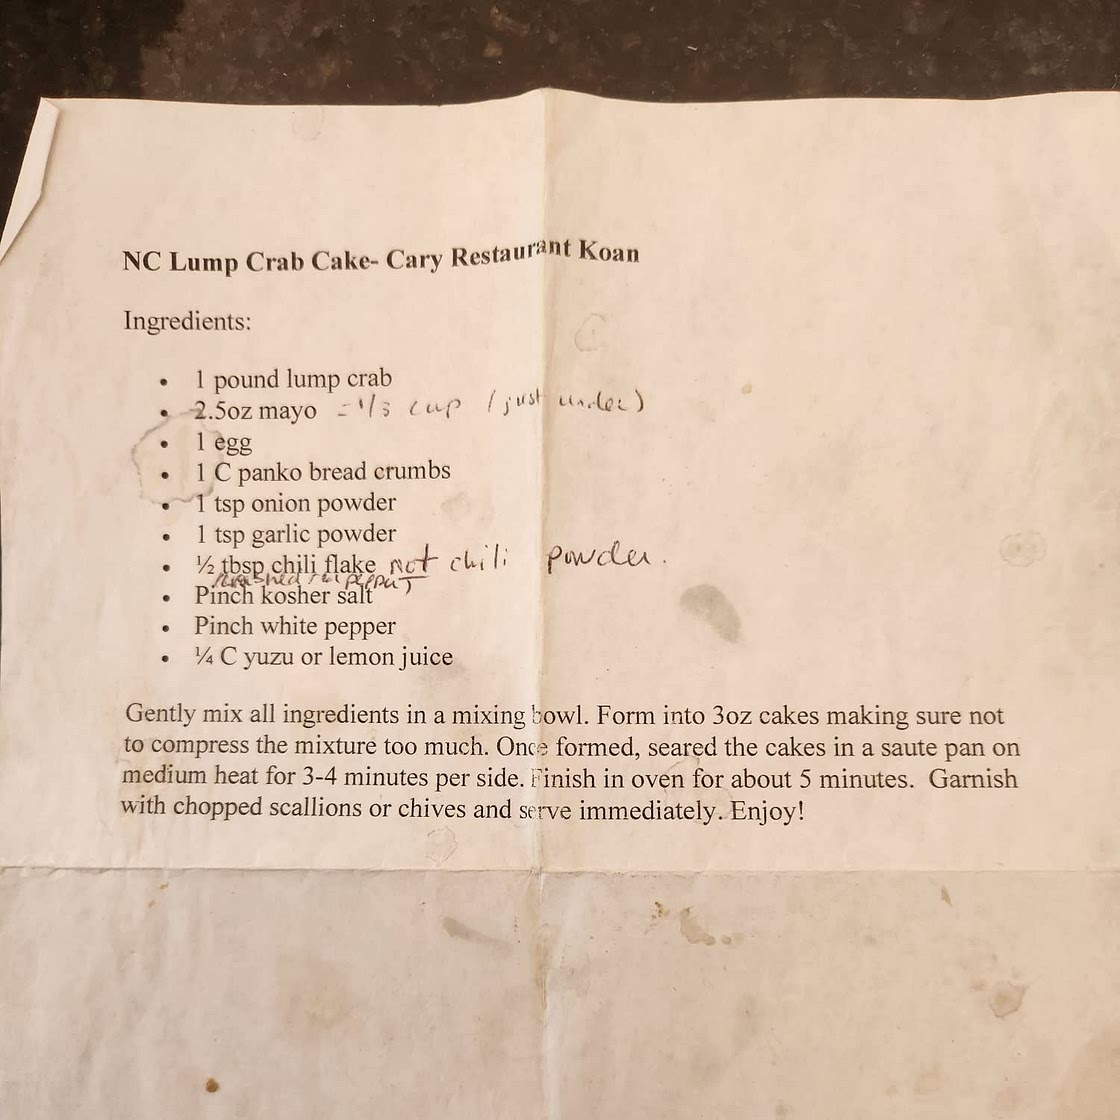 NC Lump Crab Cake- Cary Restaurant Koan
Ingredients:
• 1 pound lump crab
• 2.5oz mayo = 1/3 cup (just under)
• 1 egg
• 1 C panko bread crumbs
• 1 tsp onion powder
• 1 tsp garlic powder
• ½ tbsp chili flake not chili powder.
crushed red pepper
• Pinch kosher salt
• Pinch white pepper
• ¼ C yuzu or lemon juice
Gently mix all ingredients in a mixing bowl. Form into 3oz cakes making sure not
to compress the mixture too much. Once formed, seared the cakes in a saute pan on
medium heat for 3-4 minutes per side. Finish in oven for about 5 minutes. Garnish
with chopped scallions or chives and serve immediately. Enjoy!